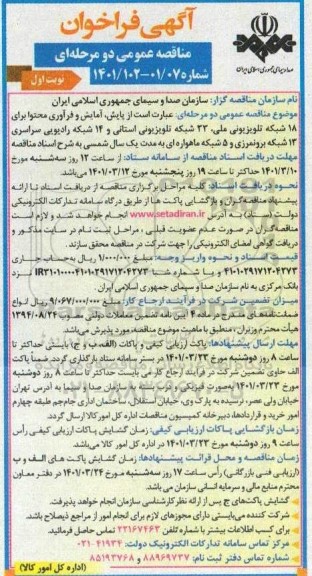 آگهی فراخوان
مناقصه عمومی دو مرحله‌ای
شماره ۱۴۰۱/۱۰۲-۰۱/۰۷
نوبت اول
صدا و سیمای جمهوری اسلامی ایران
نام سازمان مناقصه گزار: سازمان صدا و سیمای جمهوری اسلامی ایران
موضوع مناقصه عمومی دو مرحله‌ای: عبارت است از پایش، آمایش و فرآوری محتوا برای
۱۸ شبکه تلویزیونی ملی، ۳۳ شبکه تلویزیونی استانی و ۱۴ شبکه رادیویی سراسری
۱۳ شبکه برونمرزی و ۵ شبکه ماهواره ای به مدت یک سال شمسی به شرح اسناد مناقصه
مهلت دریافت اسناد مناقصه از سامانه ستاد: از ساعت ۱۲ روز سه‌شنبه مورخ
۱۴۰۱/۳/۱۰ حداکثر تا ساعت ۱۹ روز پنجشنبه مورخ ۱۴۰۱/۰۳/۱۲ می‌باشد.
نحوه دریافت اسناد: کلیه مراحل برگزاری مناقصه از دریافت اسناد تا ارائه
پیشنهاد مناقصه‌گران و بازگشایی پاکت ها از طریق درگاه سامانه تدارکات الکترونیکی
دولت (ستاد) به آدرس www.setadiran.ir انجام خواهد شد و لازم است
مناقصه‌گران در صورت عدم عضویت قبلی، مراحل ثبت نام در سایت مذکور و
دریافت گواهی امضای الکترونیکی را جهت شرکت در مناقصه محقق سازند.
قیمت اسناد و نحوه واریز وجه: مبلغ ۱/۰۰۰/۰۰۰ ریال به حساب جاری
۴۱۰۱۰۲۹۱۷۱۲۰۴۲۷۳ و یا شماره شبا نزد
بانک مرکزی به نام سازمان صدا و سیمای جمهوری اسلامی ایران
میزان تضمین شرکت در فرآیند ارجاع کار: مبلغ ۹/۰۶۷/۰۰۰/۰۰۰ ریال انواع
ضمانت‌نامه‌های مندرج در ماده ۴ آیین نامه تضمین معاملات دولتی مصوب ۱۳۹۴/۰۸/۲۴
هیأت محترم وزیران، منطبق با ماهیت موضوع مناقصه، مورد پذیرش می‌باشد.
مهلت ارسال پیشنهادها: پاکت ارزیابی کیفی و پاکات (الف، ب و ج)، بایستی حداکثر تا
ساعت ۸ روز دوشنبه مورخ ۱۴۰۱/۰۳/۲۳ در بستر سامانه ستاد بارگذاری گردد. ضمناً پاکت
الف حاوی تضمین شرکت در فرآیند ارجاع کار می بایست حداکثر تا ساعت ۸ روز دوشنبه
مورخ ۱۴۰۱/۰۳/۲۳ بصورت فیزیکی صدا و سیما به آدرس تهران
خیابان ولی عصر، نرسیده به پارک وی، خیابان استقلال، ساختمان اداری جام‌جم طبقه چهارم
امور خرید و قراردادها، دبیرخانه کمیسیون مناقصات اداره کل امور کالا ارسال گردد.
زمان بازگشایی پاکات ارزیابی کیفی: زمان گشایش پاکات ارزیابی کیفی رأس
ساعت ۹ روز دوشنبه مورخ ۱۴۰۱/۰۳/۲۳ در اداره کل امور کالا می‌باشد.
زمان مناقصه و محل قرائت پیشنهادها: زمان گشایش پاکت های الف و ب
(ارزیابی فنی بازرگانی) رأس ساعت ۱۷ روز سه‌شنبه مورخ ۱۴۰۱/۰۳/۲۴ در دفتر معاون
محترم منابع مالی و سرمایه انسانی سازمان می باشد.
گشایش پاکت‌های ج پس از ارائه نظر کارشناسی سازمان انجام خواهد پذیرفت.
شرکت کننده می‌بایستی دارای مجوزهای لازم برای انجام امور از مراجع ذیصلاح باشد.
برای کسب اطلاعات بیشتر با شماره تلفن ۲۲۱۶۷۴۶۳ تماس حاصل فرمائید.
مرکز تماس سامانه تدارکات الکترونیک دولت: ۴۱۹۳۴-۰۲۱
شماره تماس دفتر ثبت نام: ۸۸۹۶۹۷۳۷ و ۸۵۱۹۳۷۶۸
(اداره کل امور کالا)